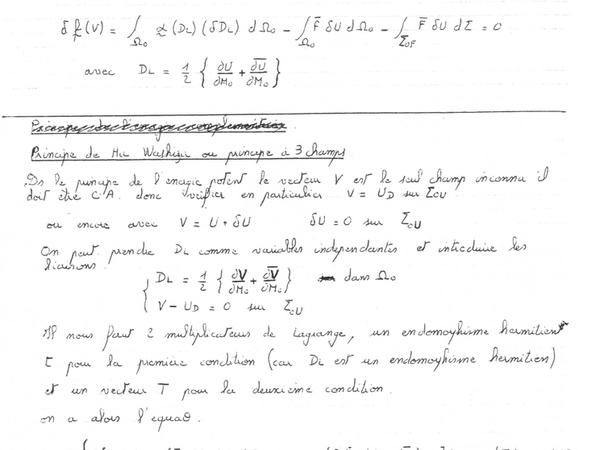 δ f(V) = ∫Ω₀ (D_L) (δD_L) dΩ₀ − ∫Ω₀ F̄ δU dΩ₀ − ∫Σ₀F F̄ δU dΣ = 0
avec D_L = 1/2 { ∂U/∂M₀ + \overline{∂U}/∂M₀ }
Principe de Hu Washizu ou principe à 3 champs
Ds le principe de l'énergie potent le vecteur V est le seul champ inconnu il
doit être C.A. donc vérifier en particulier V = U_D sur Σ₀U
ou encore avec V = U + δU δU = 0 sur Σ₀U
On peut prendre D_L comme variables indépendantes et introduire les
liaisons
D_L = 1/2 { ∂V/∂M₀ + \overline{∂V}/∂M₀ } dans Ω₀
V − U_D = 0 sur Σ₀U
Il nous faut 2 multiplicateurs de Lagrange, un endomorphisme hermitien
τ pour la première condition (car D_L est un endomorphisme hermitien)
et un vecteur T pour la deuxième condition.
on a alors l'équa⁰.